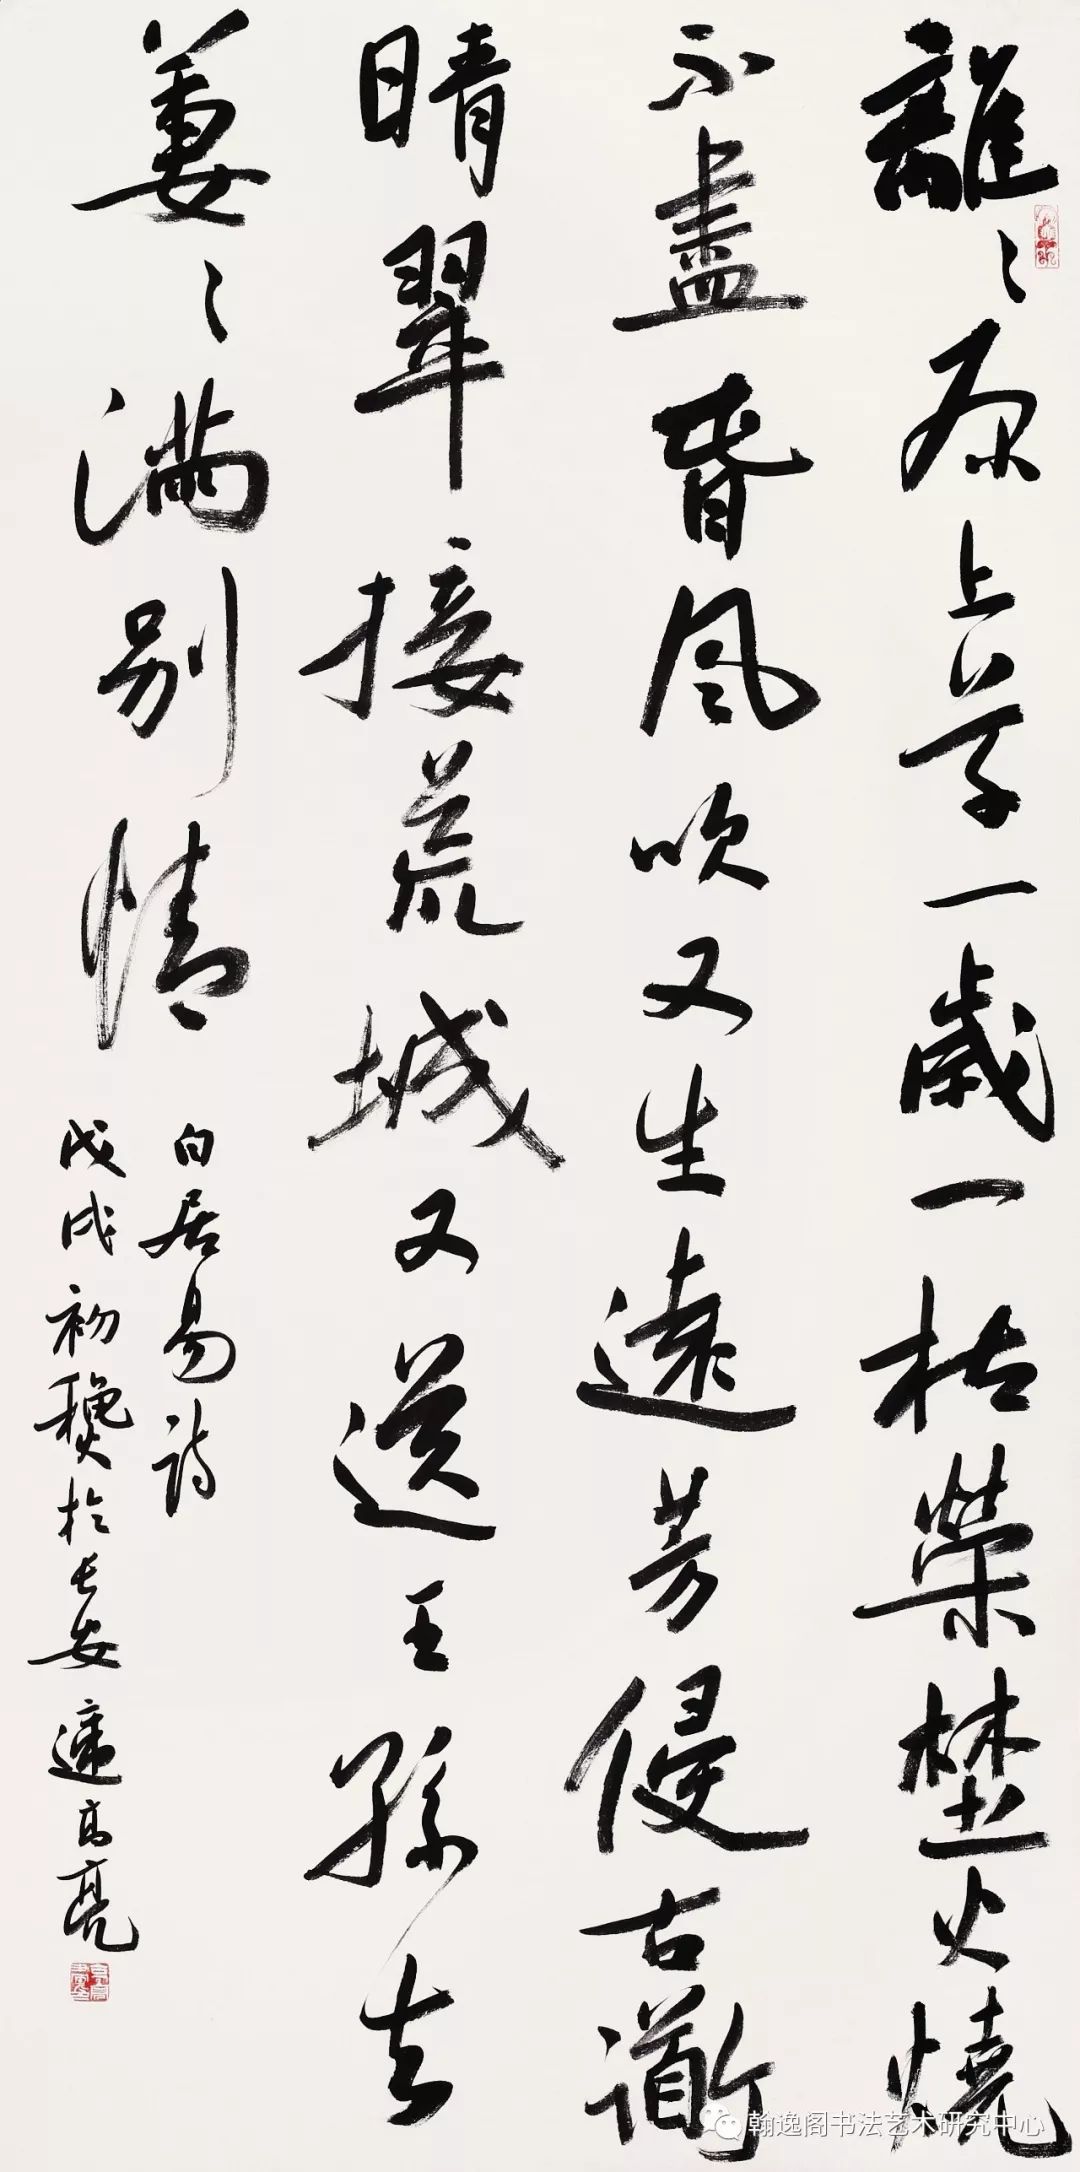 離〻原上草一歲一枯榮埜火燒
不盡春風吹又生遠芳侵古衜
晴翠接荒城又送王孫去
萋〻滿別情
白居易詩
戊戌初穐於長安遠高亮
翰逸阁书法艺术研究中心